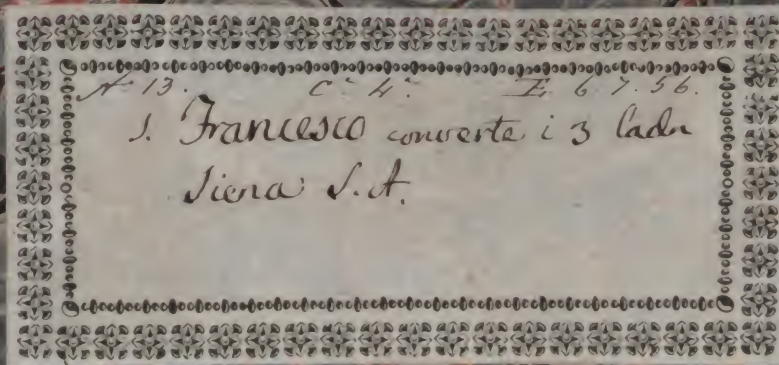 N 13. C. 4. E. 6 7. 56.
S. Francesco converte i 3 ladri
Siena S. A.